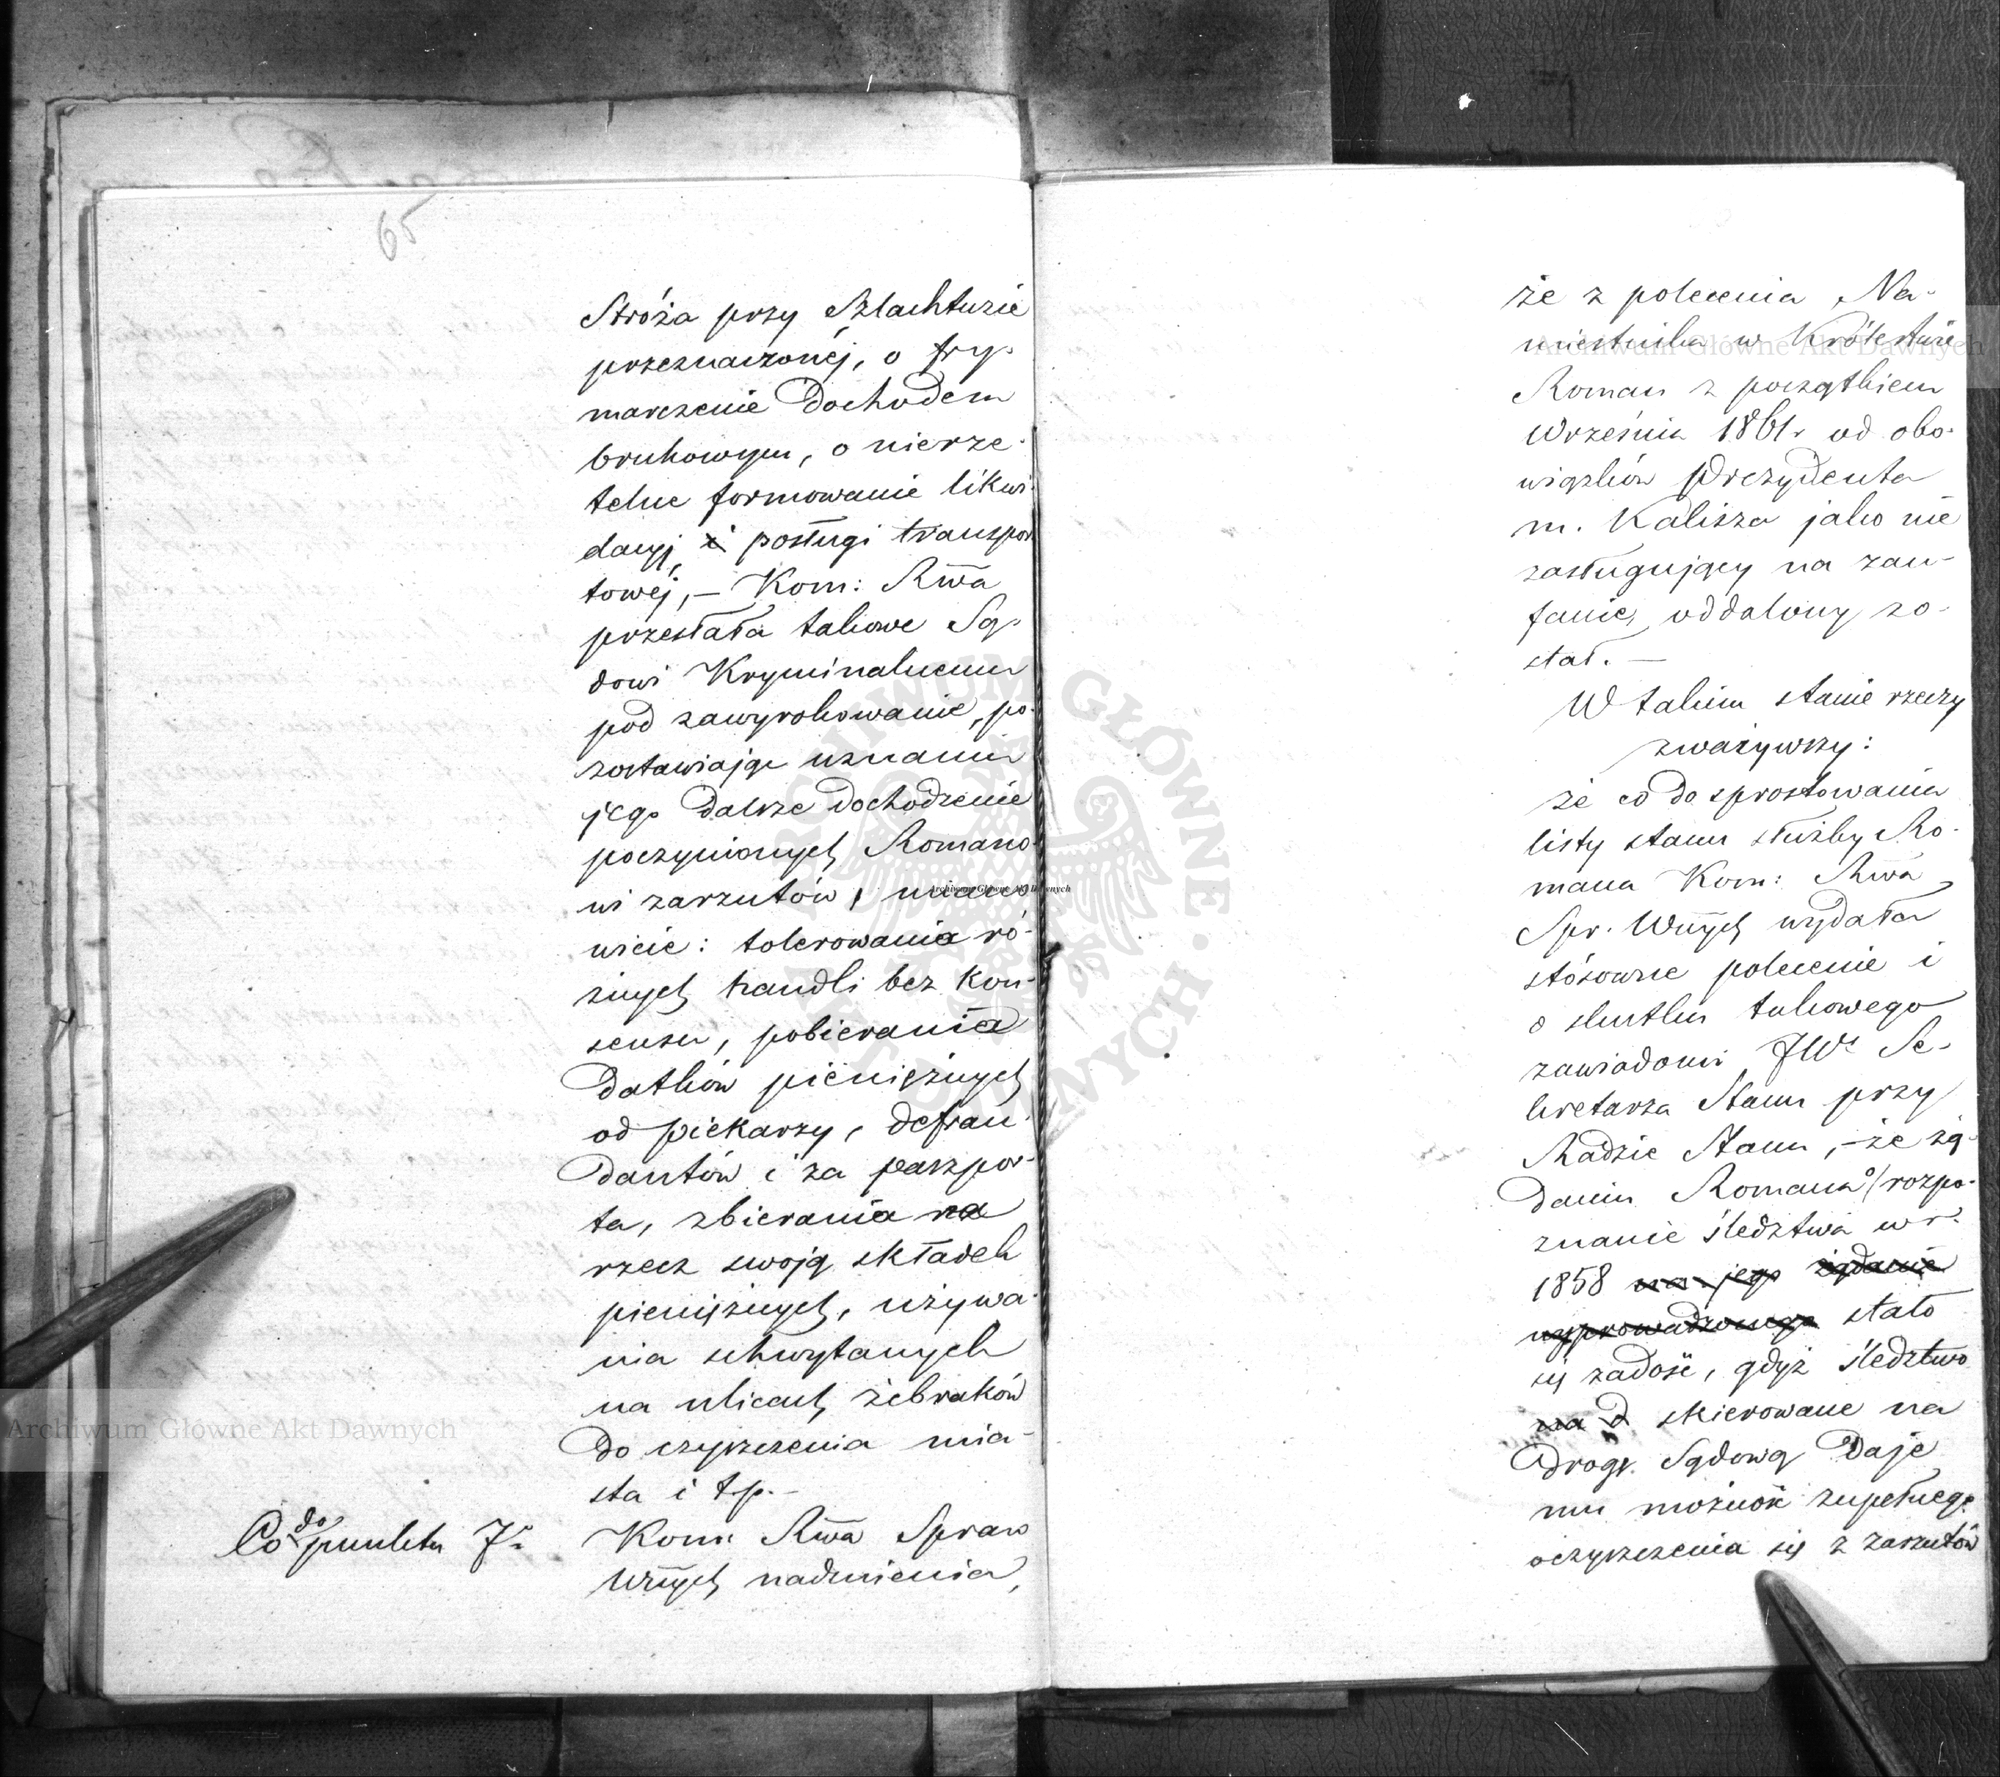 65
Stróża przy Szlachtuzie
przeznaczonéj, o fry-
marczenie Dochodem
brukowym, o nierze-
telne formowanie likwi-
dacyj, i posługi transpor
towéj, — Kom: Rwa
przesłała takowe Są-
dowi Kryminalnemu
pod zawyrokowanie, po-
zostawiając uznaniu
jego dalsze dochodzenie
poczynionych Romano-
wi zarzutów, miano
wicie: tolerowania ró-
żnych handli bez kon-
sensu, pobierania
Datków pieniężnych
od piekarzy, defrau-
dantów i za paszpor-
ta, zbierania na
rzecz swoją składek
pieniężnych, używa-
nia schwytanych
na ulicach żebraków
do czyszczenia mia-
sta i t.p. —
Co do punktu 7o Kom: Rwa Spraw
Wnych nadmienia,
że z polecenia Na-
miestnika w Królestwie
Roman z początkiem
Września 1861 r od obo-
wiązków Prezydenta
m. Kalisza jako nie
zasługujący na zau-
fanie, oddalony zo-
stał. —
W takim stanie rzeczy
zważywszy:
że co do sprostowania
listy stanu służby Ro-
mana Kom: Rwa
Spr. Wnych wydała
stósowne polecenie i
o skutku takowego
zawiadomi JWo Se-
kretarza Stanu przy
Radzie Stanu, – że żą-
daniu Romana o rozpo-
znanie śledztwa w r.
1858 na jego żądanie
wyprowadzonego stało
się zadość, gdyż śledztwo
na d skierowane na
Drogę Sądową Daje
mu możność zupełnego
oczyszczenia się z zarzutów
Archiwum Główne Akt Dawnych
Archiwum Główne Akt Dawnych
Archiwum Główne Akt Dawnych
ARCHIWUM GŁÓWNE AKT DAWNYCH